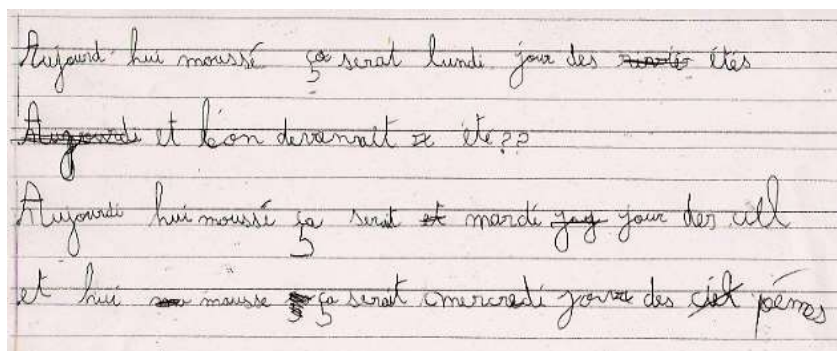 Aujourd' hui moussé ça serat lundi jour des étés
et l'on devennait été??
Aujourdi hui moussé ça serat mardi jour des ciel
et hui mousse ça serait mercredi jour des poèmes